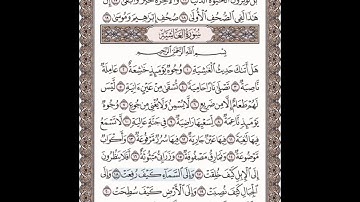 بَلْ تُؤْثِرُونَ الْحَيَوٰةَ الدُّنْيَا ۝١٦ وَالْءَاخِرَةُ خَيْرٌ وَأَبْقَىٰٓ ۝١٧ إِنَّ
هَٰذَا لَفِى الصُّحُفِ الْأُولَىٰ ۝١٨ صُحُفِ إِبْرَٰهِيمَ وَمُوسَىٰ ۝١٩
سُورَةُ الْغَاشِيَةِ
بِسْمِ اللَّهِ الرَّحْمَٰنِ الرَّحِيمِ
هَلْ أَتَىٰكَ حَدِيثُ الْغَٰشِيَةِ ۝١ وُجُوهٌ يَوْمَئِذٍ خَٰشِعَةٌ ۝٢ عَامِلَةٌ
نَّاصِبَةٌ ۝٣ تَصْلَىٰ نَارًا حَامِيَةً ۝٤ تُسْقَىٰ مِنْ عَيْنٍ ءَانِيَةٍ ۝٥ لَّيْسَ
لَهُمْ طَعَامٌ إِلَّا مِن ضَرِيعٍ ۝٦ لَّا يُسْمِنُ وَلَا يُغْنِى مِن جُوعٍ ۝٧ وُجُوهٌ
يَوْمَئِذٍ نَّاعِمَةٌ ۝٨ لِّسَعْيِهَا رَاضِيَةٌ ۝٩ فِى جَنَّةٍ عَالِيَةٍ ۝١٠ لَّا تَسْمَعُ
فِيهَا لَٰغِيَةً ۝١١ فِيهَا عَيْنٌ جَارِيَةٌ ۝١٢ فِيهَا سُرُرٌ مَّرْفُوعَةٌ ۝١٣ وَأَكْوَابٌ
مَّوْضُوعَةٌ ۝١٤ وَنَمَارِقُ مَصْفُوفَةٌ ۝١٥ وَزَرَابِىُّ مَبْثُوثَةٌ ۝١٦ أَفَلَا يَنظُرُونَ
إِلَى الْإِبِلِ كَيْفَ خُلِقَتْ ۝١٧ وَإِلَى السَّمَآءِ كَيْفَ رُفِعَتْ ۝١٨ وَإِلَى
الْجِبَالِ كَيْفَ نُصِبَتْ ۝١٩ وَإِلَى الْأَرْضِ كَيْفَ سُطِحَتْ ۝٢٠